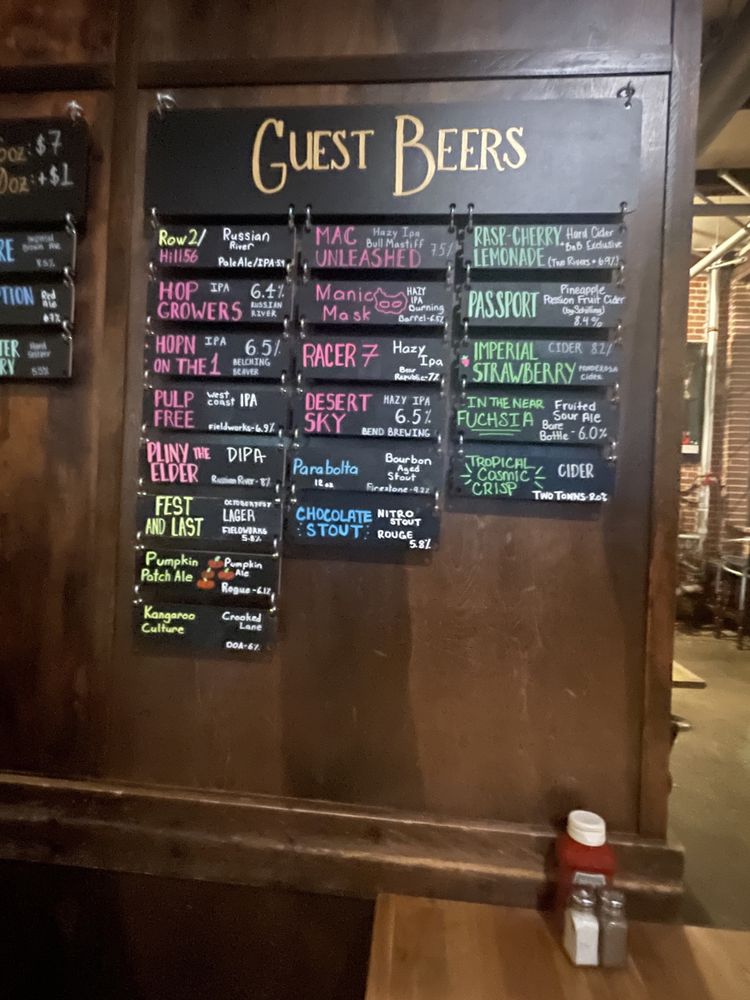 oz: $7
oz: +$1
RE
PTION Red Ale
TER Hard Seltzer
RY 5.5%
GUEST BEERS
Row2/ Russian River
Hill 56 Pale Ale/IPA
HOP IPA 6.4%
GROWERS RUSSIAN RIVER
HOPN IPA 6.5%
ON THE 1 BELCHING BEAVER
PULP West coast IPA
FREE Fieldworks-6.9%
PLINY THE DIPA
ELDER Russian River-8%
FEST OCTOBERFEST
AND LAST LAGER
FIELDWORKS
5.8%
Pumpkin Pumpkin
Patch Ale Ale
Rogue-6.1%
Kangaroo Crooked
Culture Lane
DOA-6%
MAC Hazy Ipa
UNLEASHED Bull Mastiff 7.5%
Manic HAZY IPA
Mask Burning
Barrel-6.5%
RACER 7 Hazy Ipa
Bear Republic-7%
DESERT HAZY IPA
SKY 6.5%
BEND BREWING
Parabolta Bourbon
12 oz Aged
Stout
Firestone-9.2%
CHOCOLATE NITRO
STOUT STOUT
ROUGE
5.8%
RASP-CHERRY Hard Cider
LEMONADE BnB Exclusive
(Two Rivers • 6.9%)
PASSPORT Pineapple
Passion Fruit Cider
(by Schilling)
8.4%
IMPERIAL CIDER 8.2%
STRAWBERRY PONDEROSA
Cider
IN THE NEAR Fruited
FUCHSIA Sour Ale
Bare
Bottle-6.0%
TROPICAL CIDER
COSMIC
CRISP TWO TOWNS-8.0%